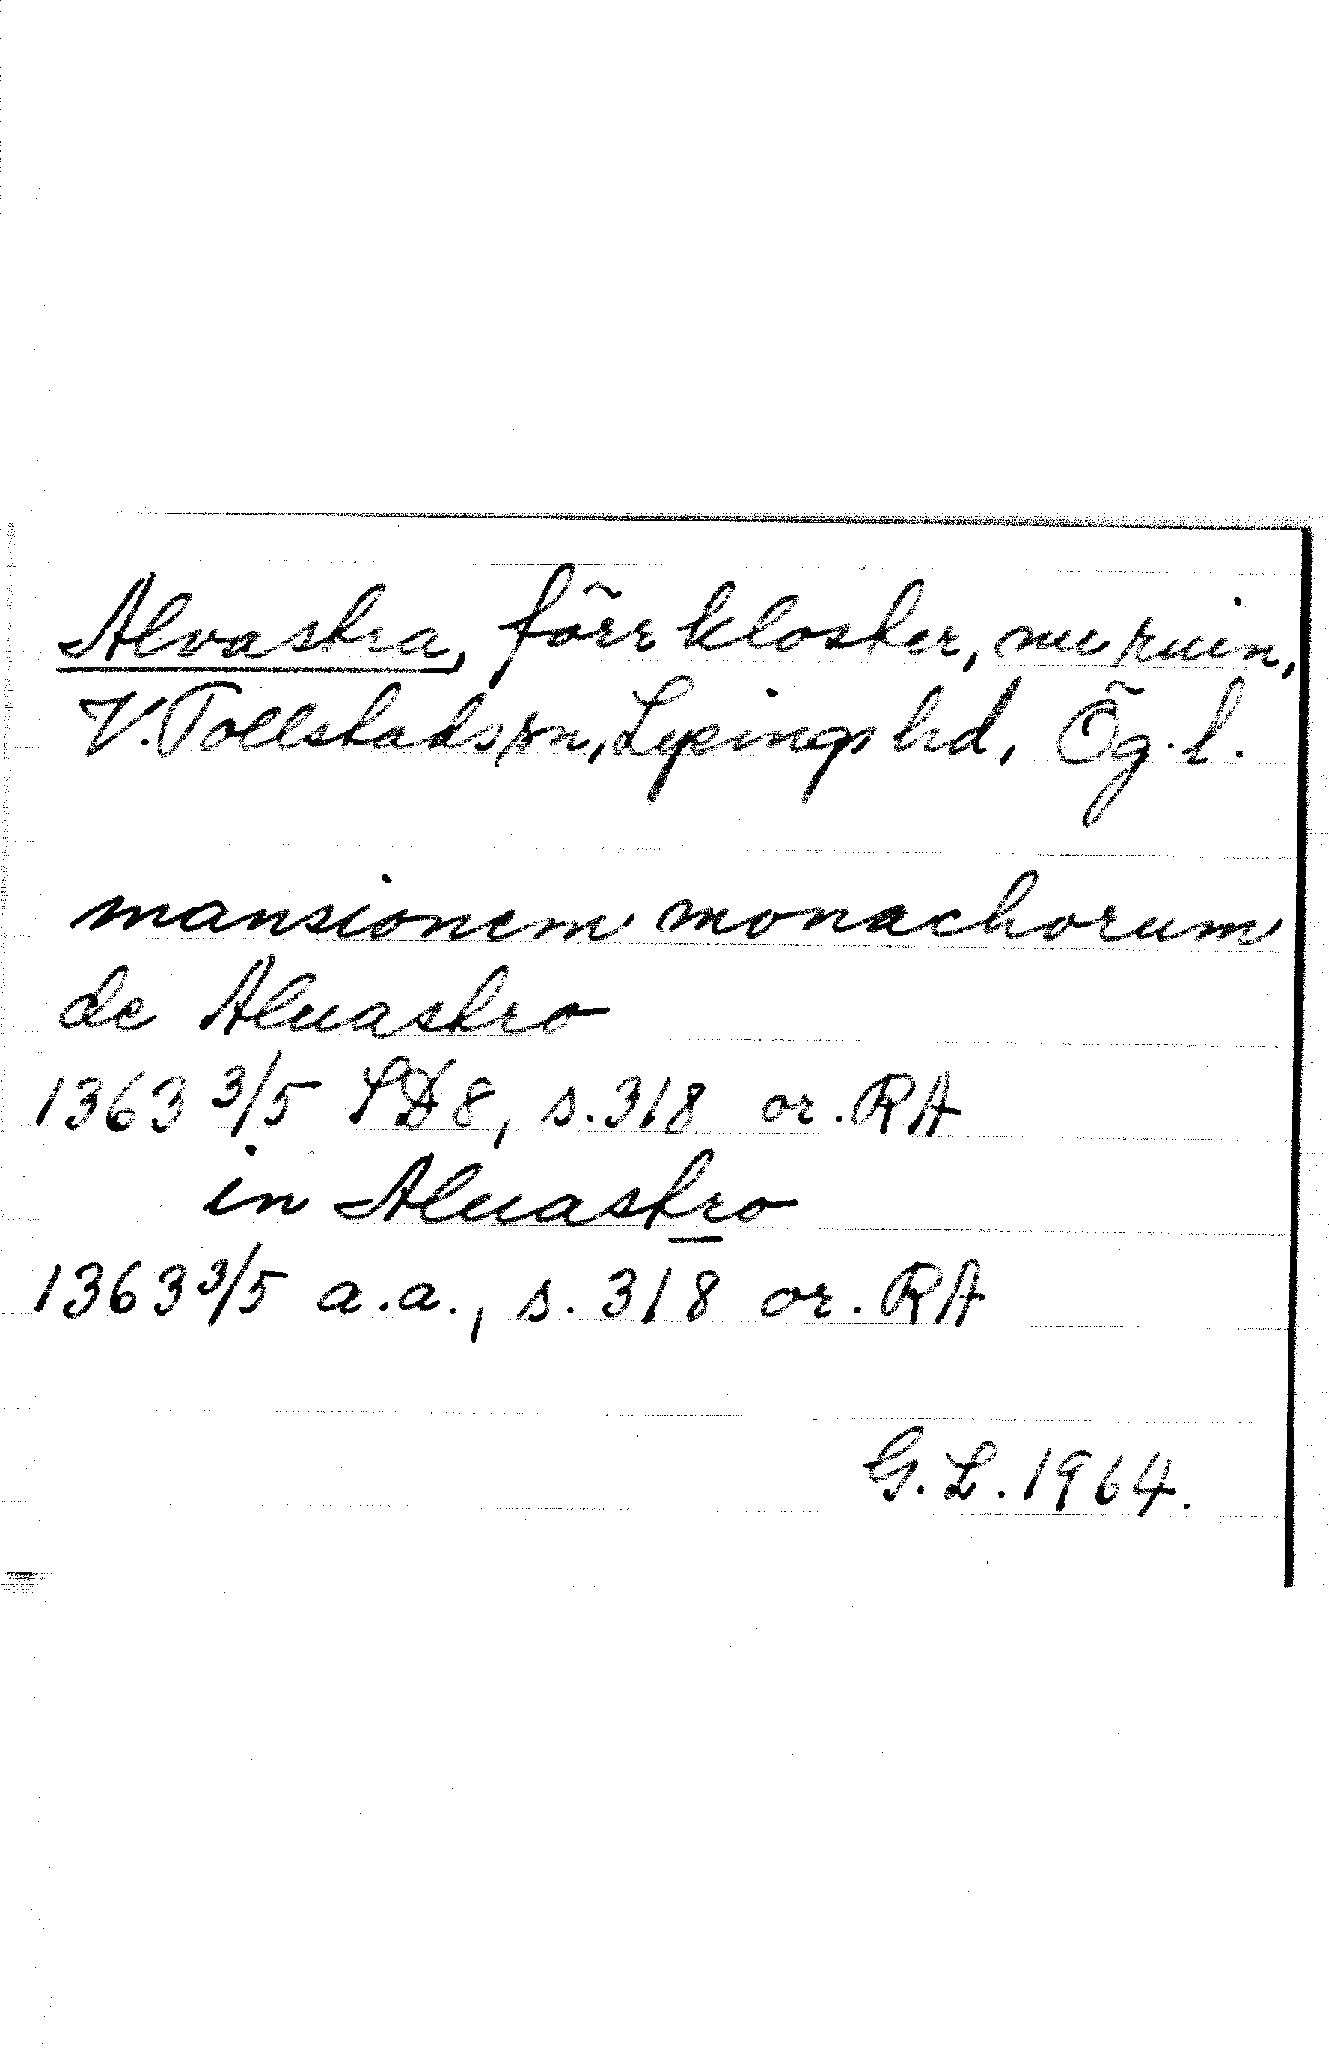 Alvastra, förr kloster, nu ruin,
V. Tollstads sn, Lysings hd, Ög. l.
mansionem monachorum
de Aluastro
1363 3/5 SD 8, s. 318 or. RA
in Aluastro
1363 3/5 a.a., s. 318 or. RA
G. L. 1964.